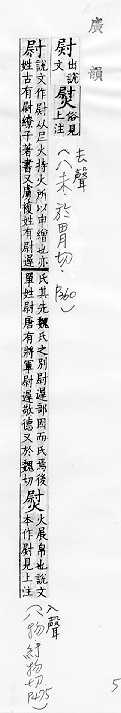 廣韻
𡰥出說文 熨俗見上注
去聲
(八未 於胃切 P360)
尉說文作𡰥以𡰥火持火所以申繒也亦
姓古有尉繚子著書又虜複姓有尉遲
氏其先魏氏之別尉遲部因而氏焉後
單姓尉唐有將軍尉遲敬德又於魏切
熨火展帛也說文
本作尉見上注
入聲
(八物 紆物切 P475)
5